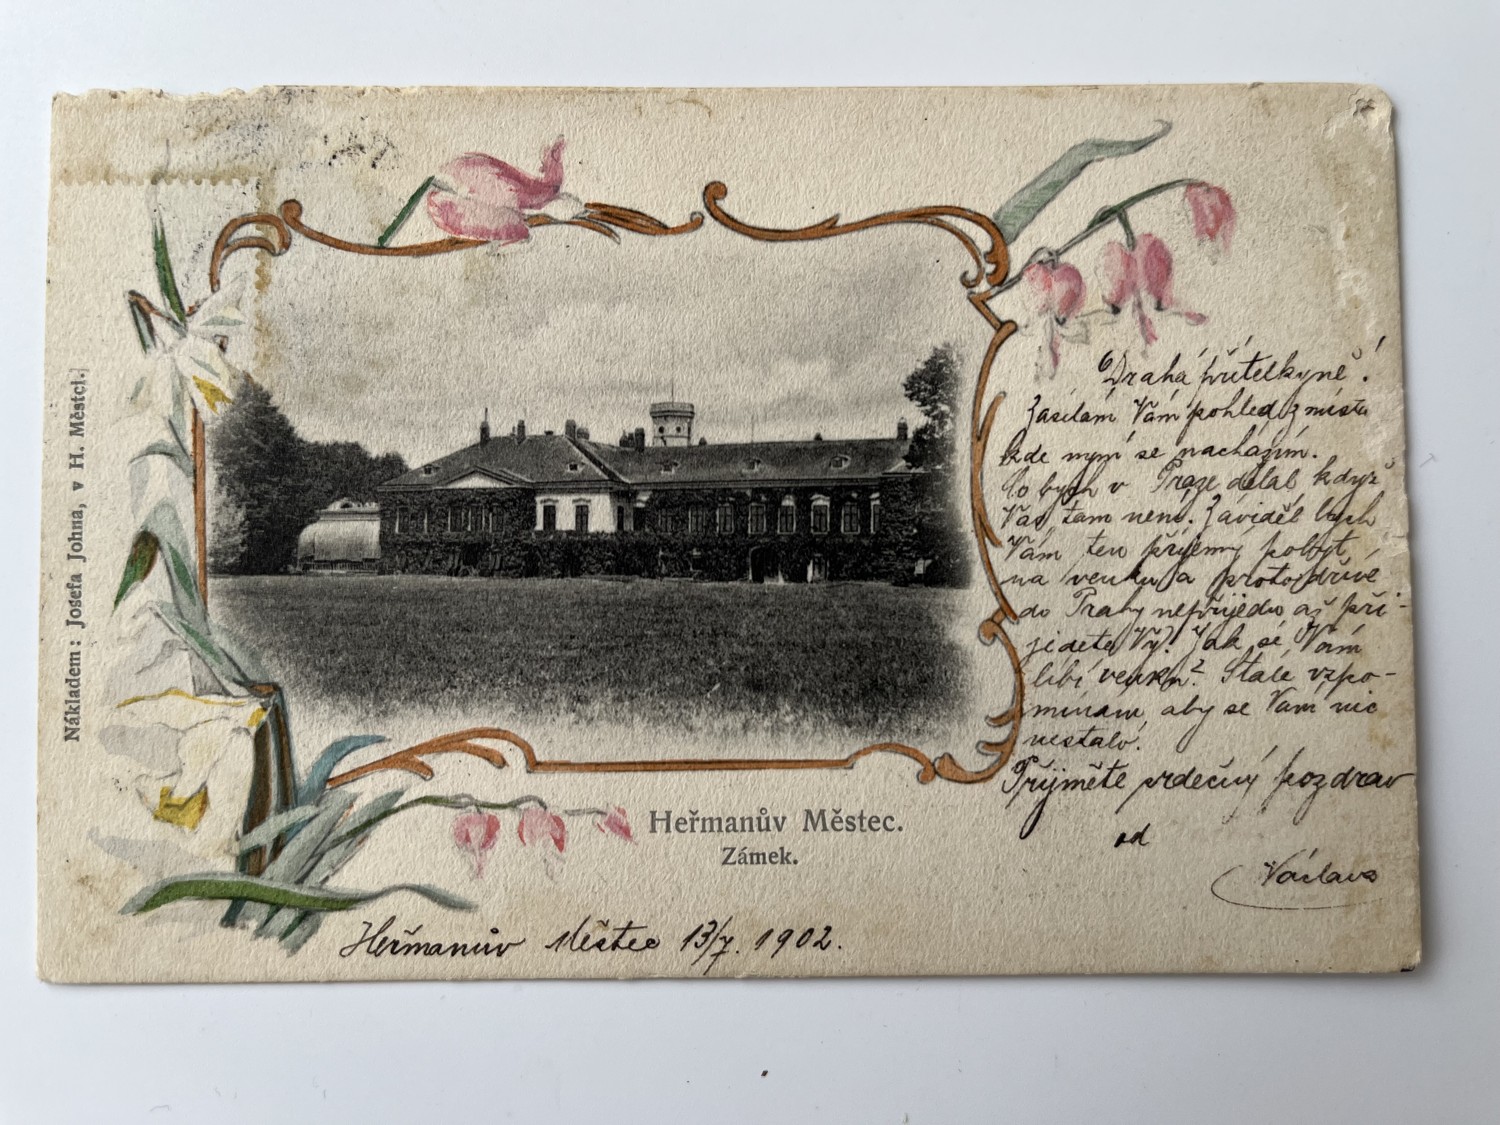 Nákladem: Josefa Johna, v H. Městci.
Drahá přítelkyně!
Zasílám Vám pohled z místa
kde nyní se nacházím.
Co bych v Praze dělal když
Vás tam není. Záviděl bych
Vám ten příjemný pobyt
na venku a proto dříve
do Prahy nepřijedu až při-
jedete Vy! Jak se Vám
líbí venku? Stále vzpo-
mínám, aby se Vám nic
nestalo.
Přijměte srdečný pozdrav
od
Václava
Heřmanův Městec.
Zámek.
Heřmanův Městec 13/7. 1902.